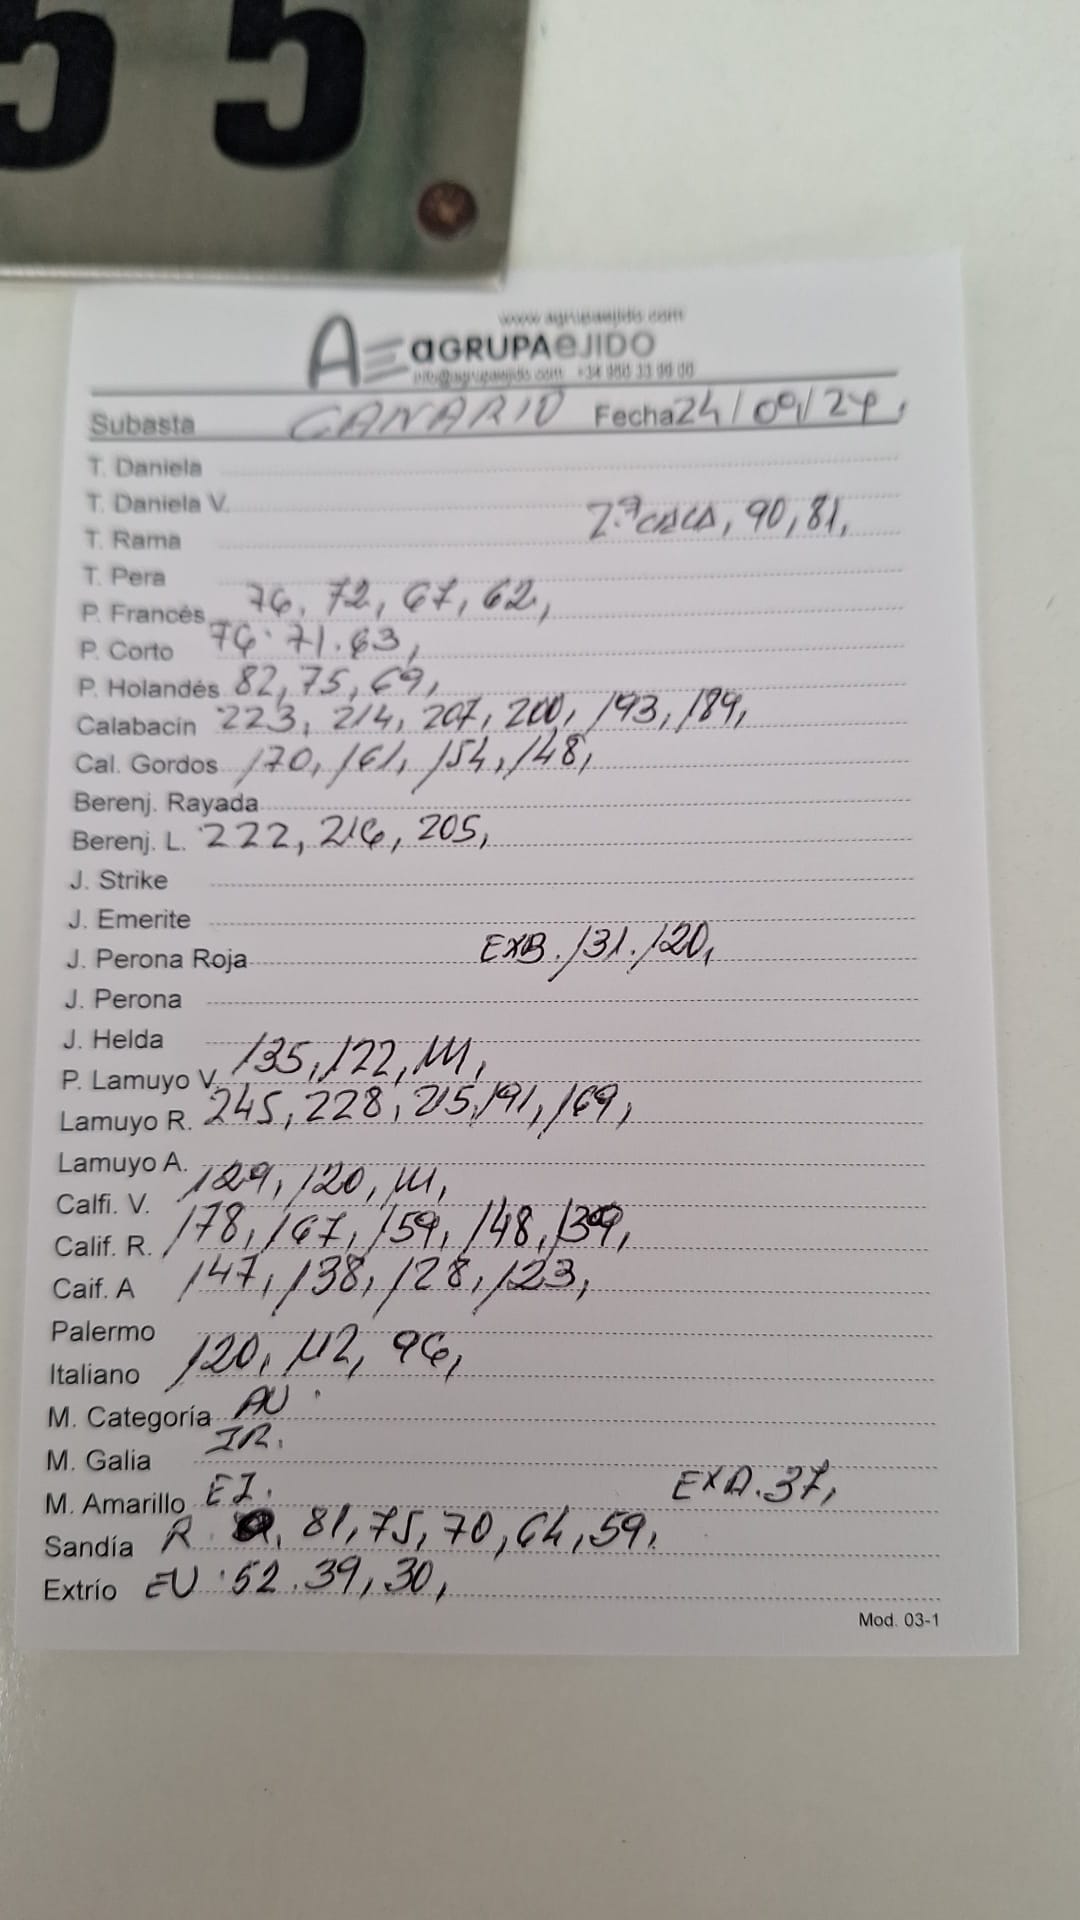 55
www.agrupaejido.com
AE aGRUPAeJIDO
info@agrupaejido.com +34 950 33 99 00
Subasta CANARIO Fecha 24/09/24,
T. Daniela
T. Daniela V.
2.ª CACA, 90, 81,
T. Rama
T. Pera
P. Francés 76, 72, 67, 62,
P. Corto 76. 71. 63,
P. Holandés 82, 75, 69,
Calabacín 223, 214, 207, 200, 193, 189,
Cal. Gordos 170, 161, 154, 148,
Berenj. Rayada
Berenj. L. 222, 216, 205,
J. Strike
J. Emerite
J. Perona Roja EXB. 131. 120,
J. Perona
J. Helda
P. Lamuyo V. 135, 122, 111,
Lamuyo R. 245, 228, 215, 191, 169,
Lamuyo A.
Calfi. V. 129, 120, 111,
Calif. R. 178, 167, 159, 148, 139,
Caif. A 147, 138, 128, 123,
Palermo
Italiano 120, 112, 96,
M. Categoría AU.
M. Galia IR.
M. Amarillo EJ. EXA. 37,
Sandía R. 81, 75, 70, 64, 59,
Extrío EU. 52. 39, 30,
Mod. 03-1